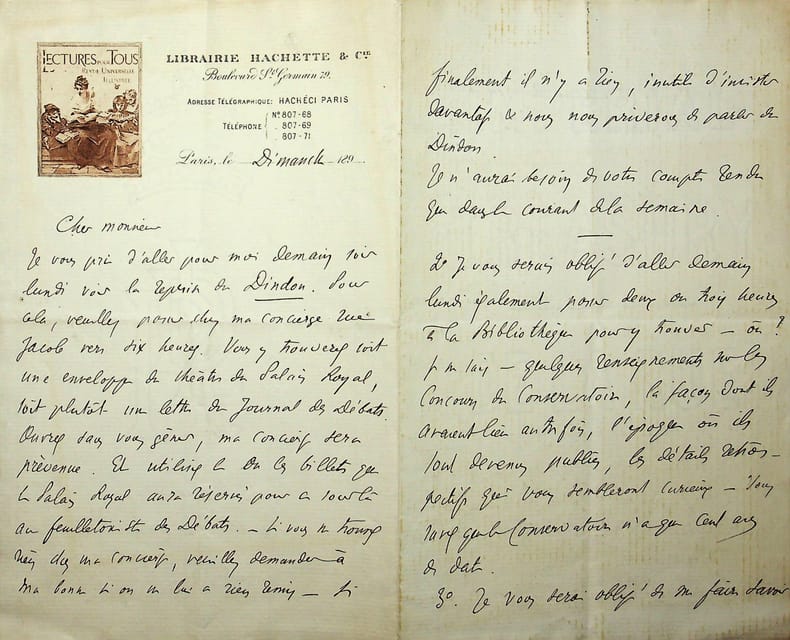 LECTURES POUR TOUS
REVUE UNIVERSELLE
ILLUSTRÉE
LIBRAIRIE HACHETTE & Cie
Boulevard St Germain 79.
ADRESSE TÉLÉGRAPHIQUE: HACHÉCI PARIS
TÉLÉPHONE { Nos 807-68
807-69
807-71
Paris, le Dimanche 189
Cher monsieur
Je vous prie d'aller pour moi demain soir
lundi voir la reprise du Dindon. Pour
cela, veuillez passer chez ma concierge rue
Jacob vers six heures. Vous y trouverez soit
une enveloppe du théâtre du Palais Royal,
soit plutôt une lettre du Journal des Débats.
Ouvrez sans vous gêner, ma concierge sera
prévenue. Et utilisez le ou les billets que
le Palais Royal aura réservés pour ce soir là
au feuilletoniste des Débats. – Si vous ne trouvez
rien chez ma concierge, veuillez demander à
ma bonne si on ne lui a rien remis – Si
finalement il n'y a rien, inutile d'insister
davantage & nous nous priverons de parler du
Dindon
Je n'aurai besoin de votre compte rendu
que dans le courant de la semaine.
2o Je vous serais obligé d'aller demain
lundi également passer deux ou trois heures
à la Bibliothèque pour y trouver – où ?
je ne sais – quelques renseignements sur les
Concours du Conservatoire, la façon dont ils
avaient lieu autrefois, l'époque où ils
sont devenus publics, les détails rétros-
pectifs qui vous sembleront curieux – Vous
savez que le Conservatoire n'a que cent ans
de date.
3o. Je vous serai obligé de me faire savoir